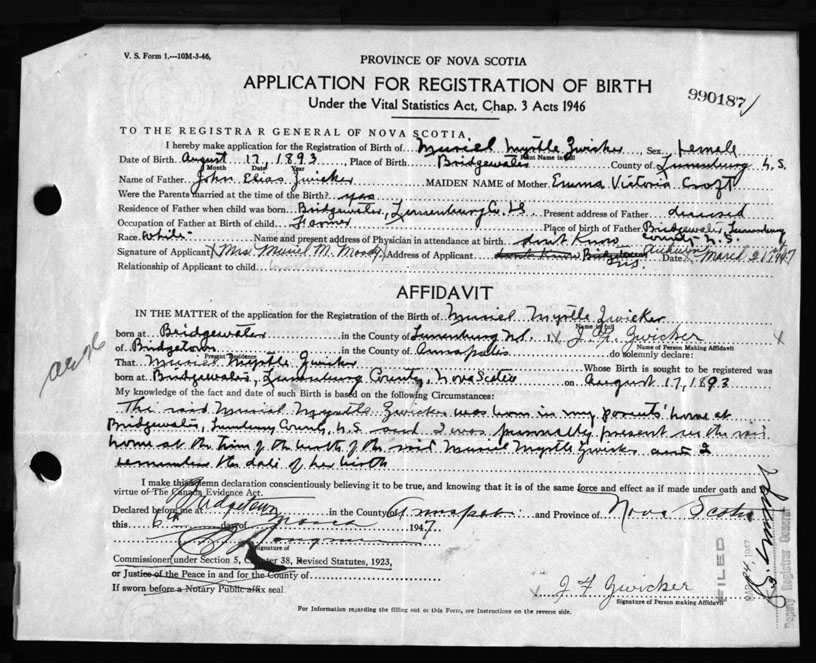 V. S. Form 1.—10M-3-46,
PROVINCE OF NOVA SCOTIA
APPLICATION FOR REGISTRATION OF BIRTH
Under the Vital Statistics Act, Chap. 3 Acts 1946
990187
TO THE REGISTRAR GENERAL OF NOVA SCOTIA,
I hereby make application for the Registration of Birth of Muriel Myrtle Zwicker Sex Female
Print Name in full
Date of Birth August 17, 1893, Place of Birth Bridgewater County of Lunenburg N.S.
Month Date Year
Name of Father John Elias Zwicker MAIDEN NAME of Mother Emma Victoria Croft
Were the Parents married at the time of the Birth? yes
Residence of Father when child was born Bridgewater, Lunenburg Co. NS Present address of Father deceased
Occupation of Father at Birth of child Farmer Place of birth of Father Bridgewater, Lunenburg County N.S.
Race White Name and present address of Physician in attendance at birth dont Know
Signature of Applicant Mrs Muriel M. Moody Address of Applicant dont Know Bridgetown Date March 1947
Relationship of Applicant to child
AFFIDAVIT
IN THE MATTER of the application for the Registration of the Birth of Muriel Myrtle Zwicker
Name in full
born at Bridgewater in the County of Lunenburg NS. I, J. F. Zwicker
Name of Person Making Affidavit
of Bridgetown in the County of Annapolis do solemnly declare:
Present Residence
That Muriel Myrtle Zwicker Whose Birth is sought to be registered was
born at Bridgewater, Lunenburg County, Nova Scotia on August 17, 1893
My knowledge of the fact and date of such Birth is based on the following Circumstances:
The said Muriel Myrtle Zwicker was born in my parents' home at
Bridgewater, Lunenburg County, N.S. and I was personally present in the said
home at the time of the birth of the said Muriel Myrtle Zwicker and I
remember the date of her birth
I make this solemn declaration conscientiously believing it to be true, and knowing that it is of the same force and effect as if made under oath and by
virtue of The Canada Evidence Act.
Declared before me at Bridgetown in the County of Annapolis and Province of Nova Scotia
this 6th day of March 1947.
Signature of
Commissioner under Section 5, Chapter 38, Revised Statutes, 1923,
or Justice of the Peace in and for the County of
If sworn before a Notary Public affix seal.
J F Zwicker
Signature of Person making Affidavit
For Information regarding the filling out of this Form, see Instructions on the reverse side.
FILED
Deputy Registrar General